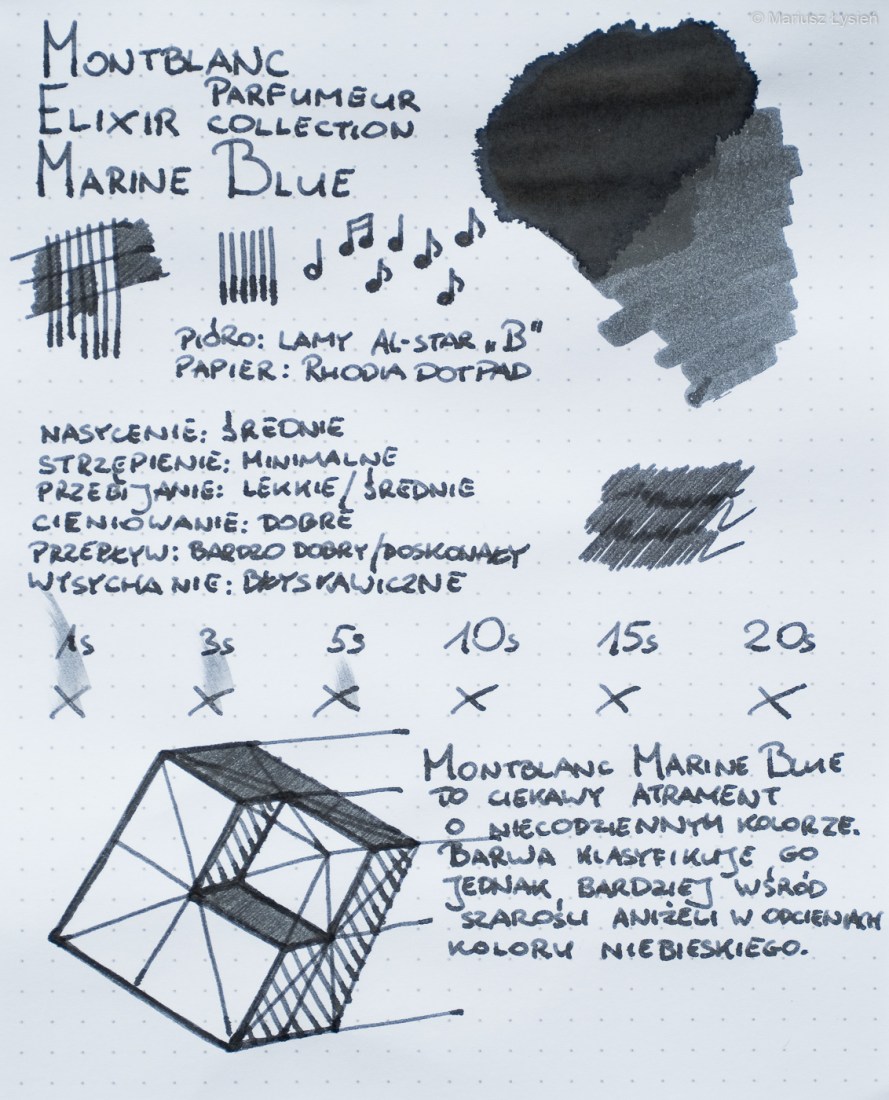 © Mariusz Lysień
MONTBLANC
ELIXIR PARFUMEUR COLLECTION
MARINE BLUE
PIÓRO: LAMY AL-STAR „B”
PAPIER: RHODIA DOTPAD
NASYCENIE: ŚREDNIE
STRZĘPIENIE: MINIMALNE
PRZEBIJANIE: LEKKIE/ŚREDNIE
CIENIOWANIE: DOBRE
PRZEPŁYW: BARDZO DOBRY/DOSKONAŁY
WYSYCHANIE: BŁYSKAWICZNE
1s 3s 5s 10s 15s 20s
X X X X X X
MONTBLANC MARINE BLUE
TO CIEKAWY ATRAMENT
O NIECODZIENNYM KOLORZE.
BARWA KLASYFIKUJE GO
JEDNAK BARDZIEJ WŚRÓD
SZAROŚCI ANIŻELI W ODCIENIACH
KOLORU NIEBIESKIEGO.